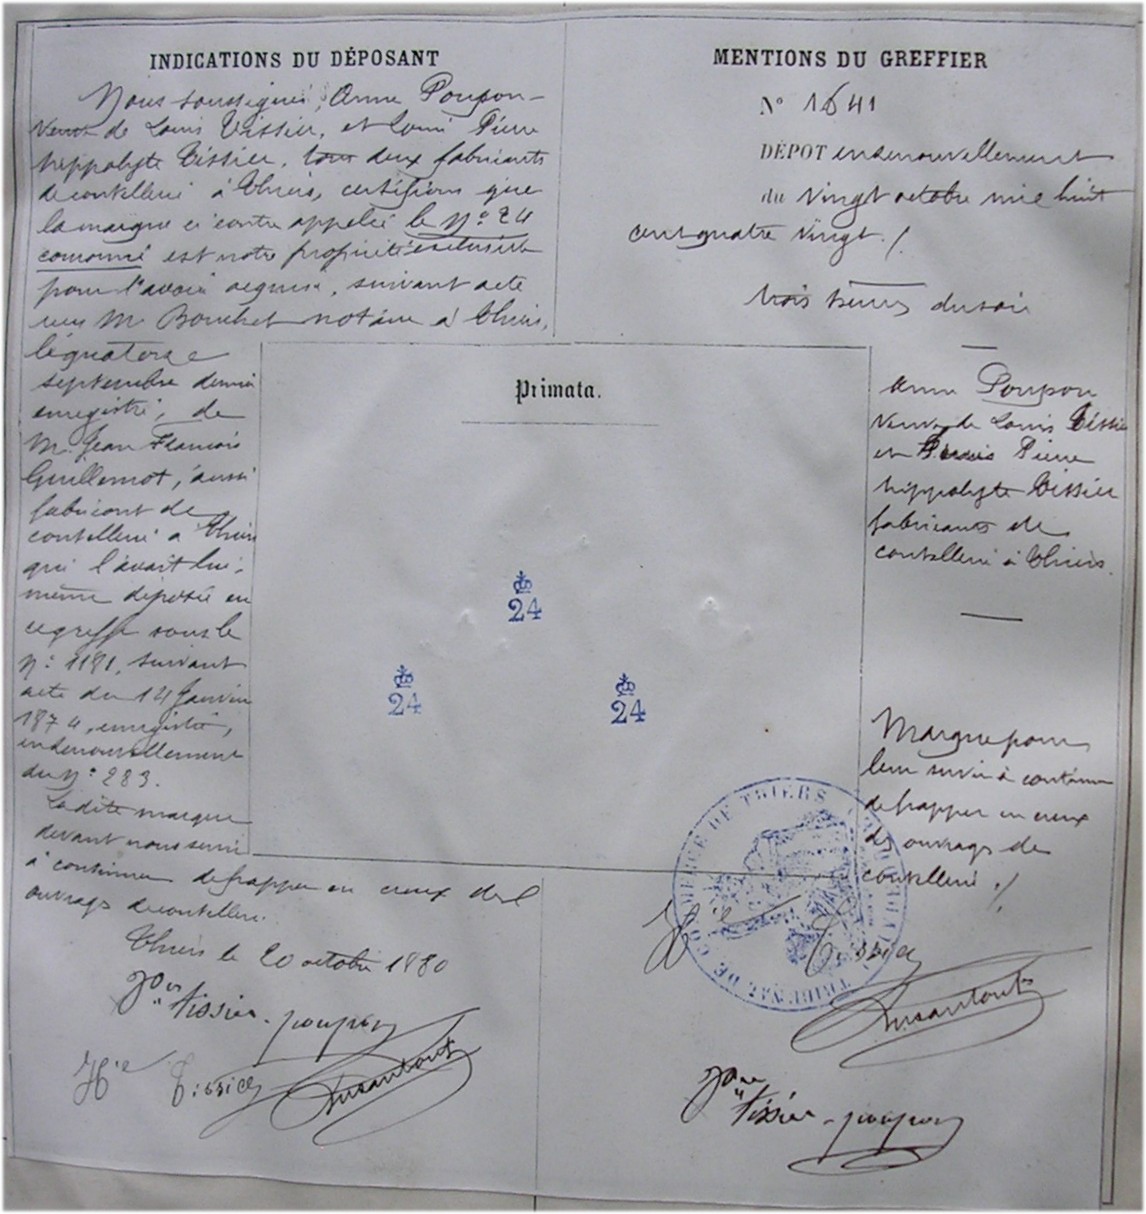 INDICATIONS DU DÉPOSANT
Nous soussignés, Anne Poupon
Veuve de Louis Tissier, et Louis Pierre
hippolyte Tissier, tous deux fabricants
de coutellerie à Thiers, certifions que
la marque ci contre appelée le N° 24
couronné est notre propriété exclusive
pour l'avoir acquise, suivant acte
reçu Me Bouchet notaire à Thiers,
le quatorze
septembre dernier
enregistré, de
M. Jean François
Guillemot, aussi
fabricant de
coutellerie à Thiers
qui l'avait lui-
même déposée en
ce greffe sous le
N° 1181, suivant
acte du 14 Janvier
1874, enregistré,
en renouvellement
du N° 283.
La dite marque
devant nous servir
à continuer de frapper en creux des
ouvrages de coutellerie.
Thiers le 20 octobre 1880
Tissier-poupon
Tissier
MENTIONS DU GREFFIER
N° 1641
DÉPOT en renouvellement
du Vingt octobre mil huit
cent quatre vingt./.
trois heures du soir
Anne Poupon
Veuve de Louis Tissier
et Pierre
hippolyte Tissier
fabricants de
coutellerie à Thiers.
Marque pour
leur servir à continuer
de frapper en creux
des ouvrages de
coutellerie./.
Primata.
24
24
24
TRIBUNAL DE COMMERCE DE THIERS
Tissier
Tissier-poupon